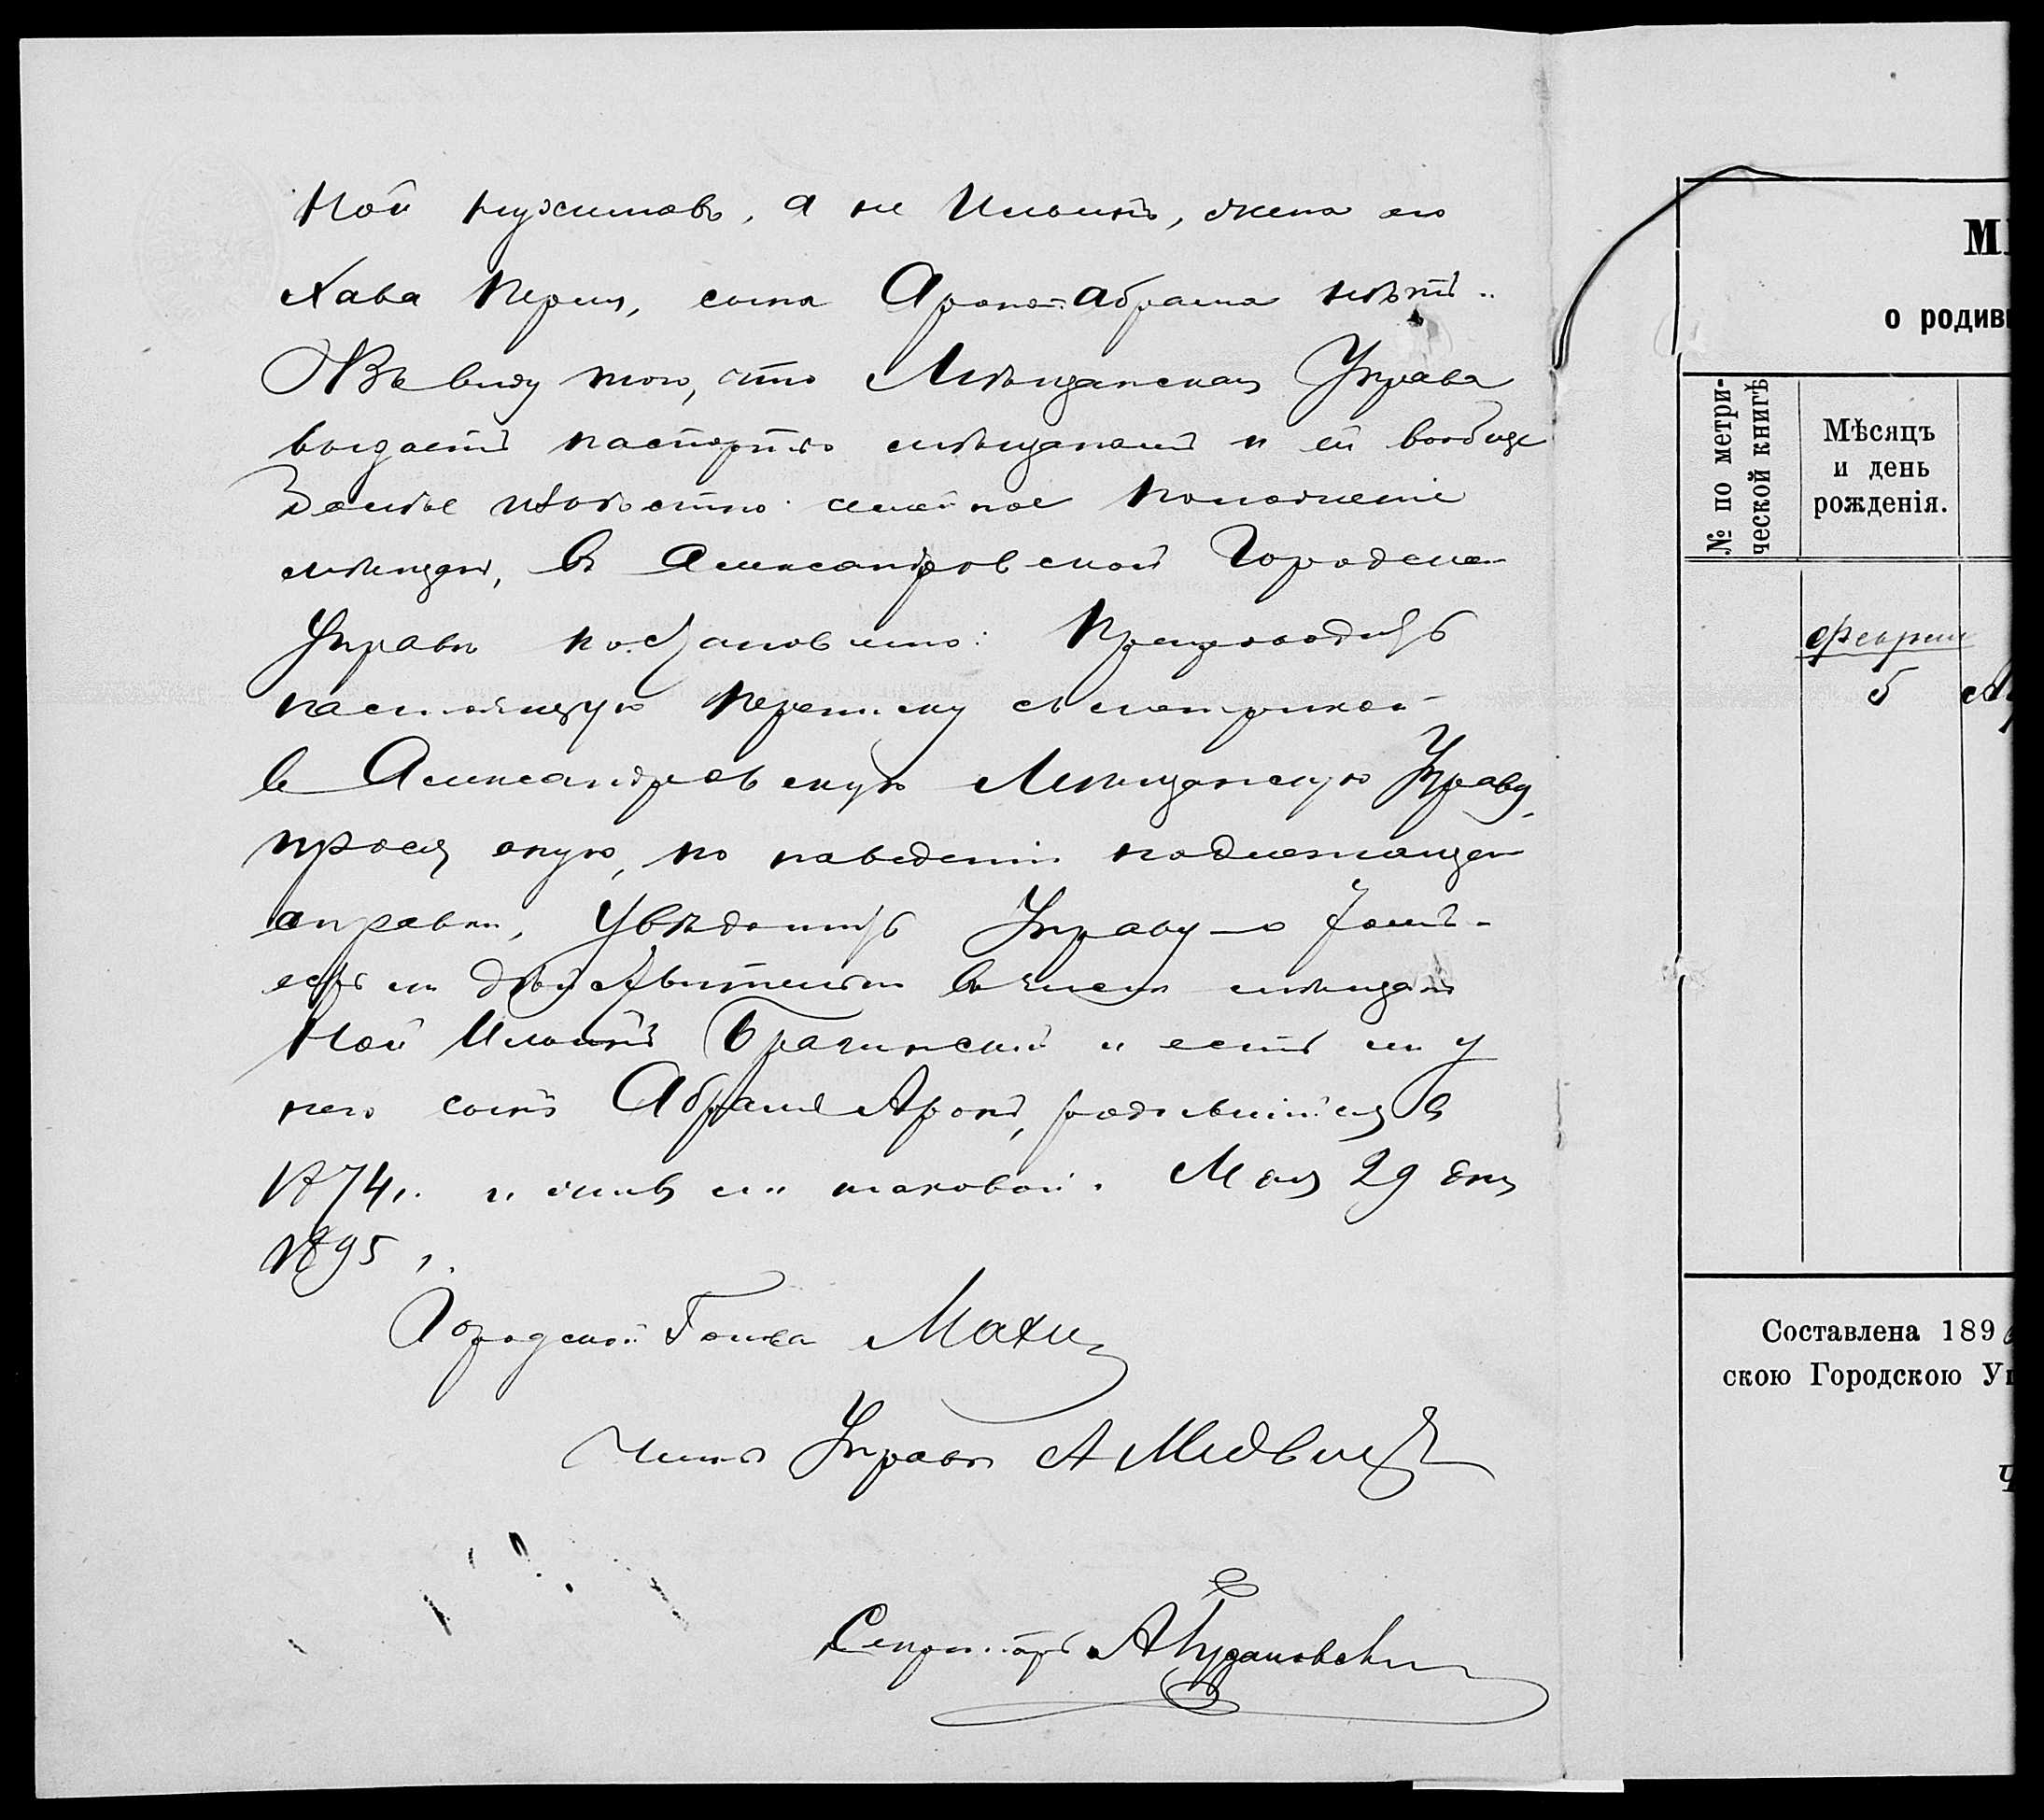 Ной Нухимовъ, а не Ильинъ, жена его
Хава Перля, сына Арона-Абрама нѣтъ.
Въ виду того, что Мѣщанская Управа
выдаетъ паспорты мѣщанамъ и ей вообще
болѣе извѣстно семейное положеніе
мѣщанъ, въ Александровской Городской
Управѣ постановлено: Препроводить
настоящую переписку съ метрикой
въ Александровскую Мѣщанскую Управу,
прося оную, по наведеніи надлежащей
справки, увѣдомить Управу о томъ
есть ли дѣйствительно въ числѣ мѣщанъ
Ной Ильинъ Брагинскій и есть ли у
него сынъ Абрамъ Аронъ, родившійся въ
1874 г. и живъ ли таковой. Мая 29 дня
1895 г.
Городской Голова Махи
Членъ Управы А Медв
Секретарь А
МЕ
о родивш
№ по метри-
ческой книгѣ
Мѣсяцъ
и день
рожденія.
Февраля
5
Составлена 189
скою Городскою Уп
Ч